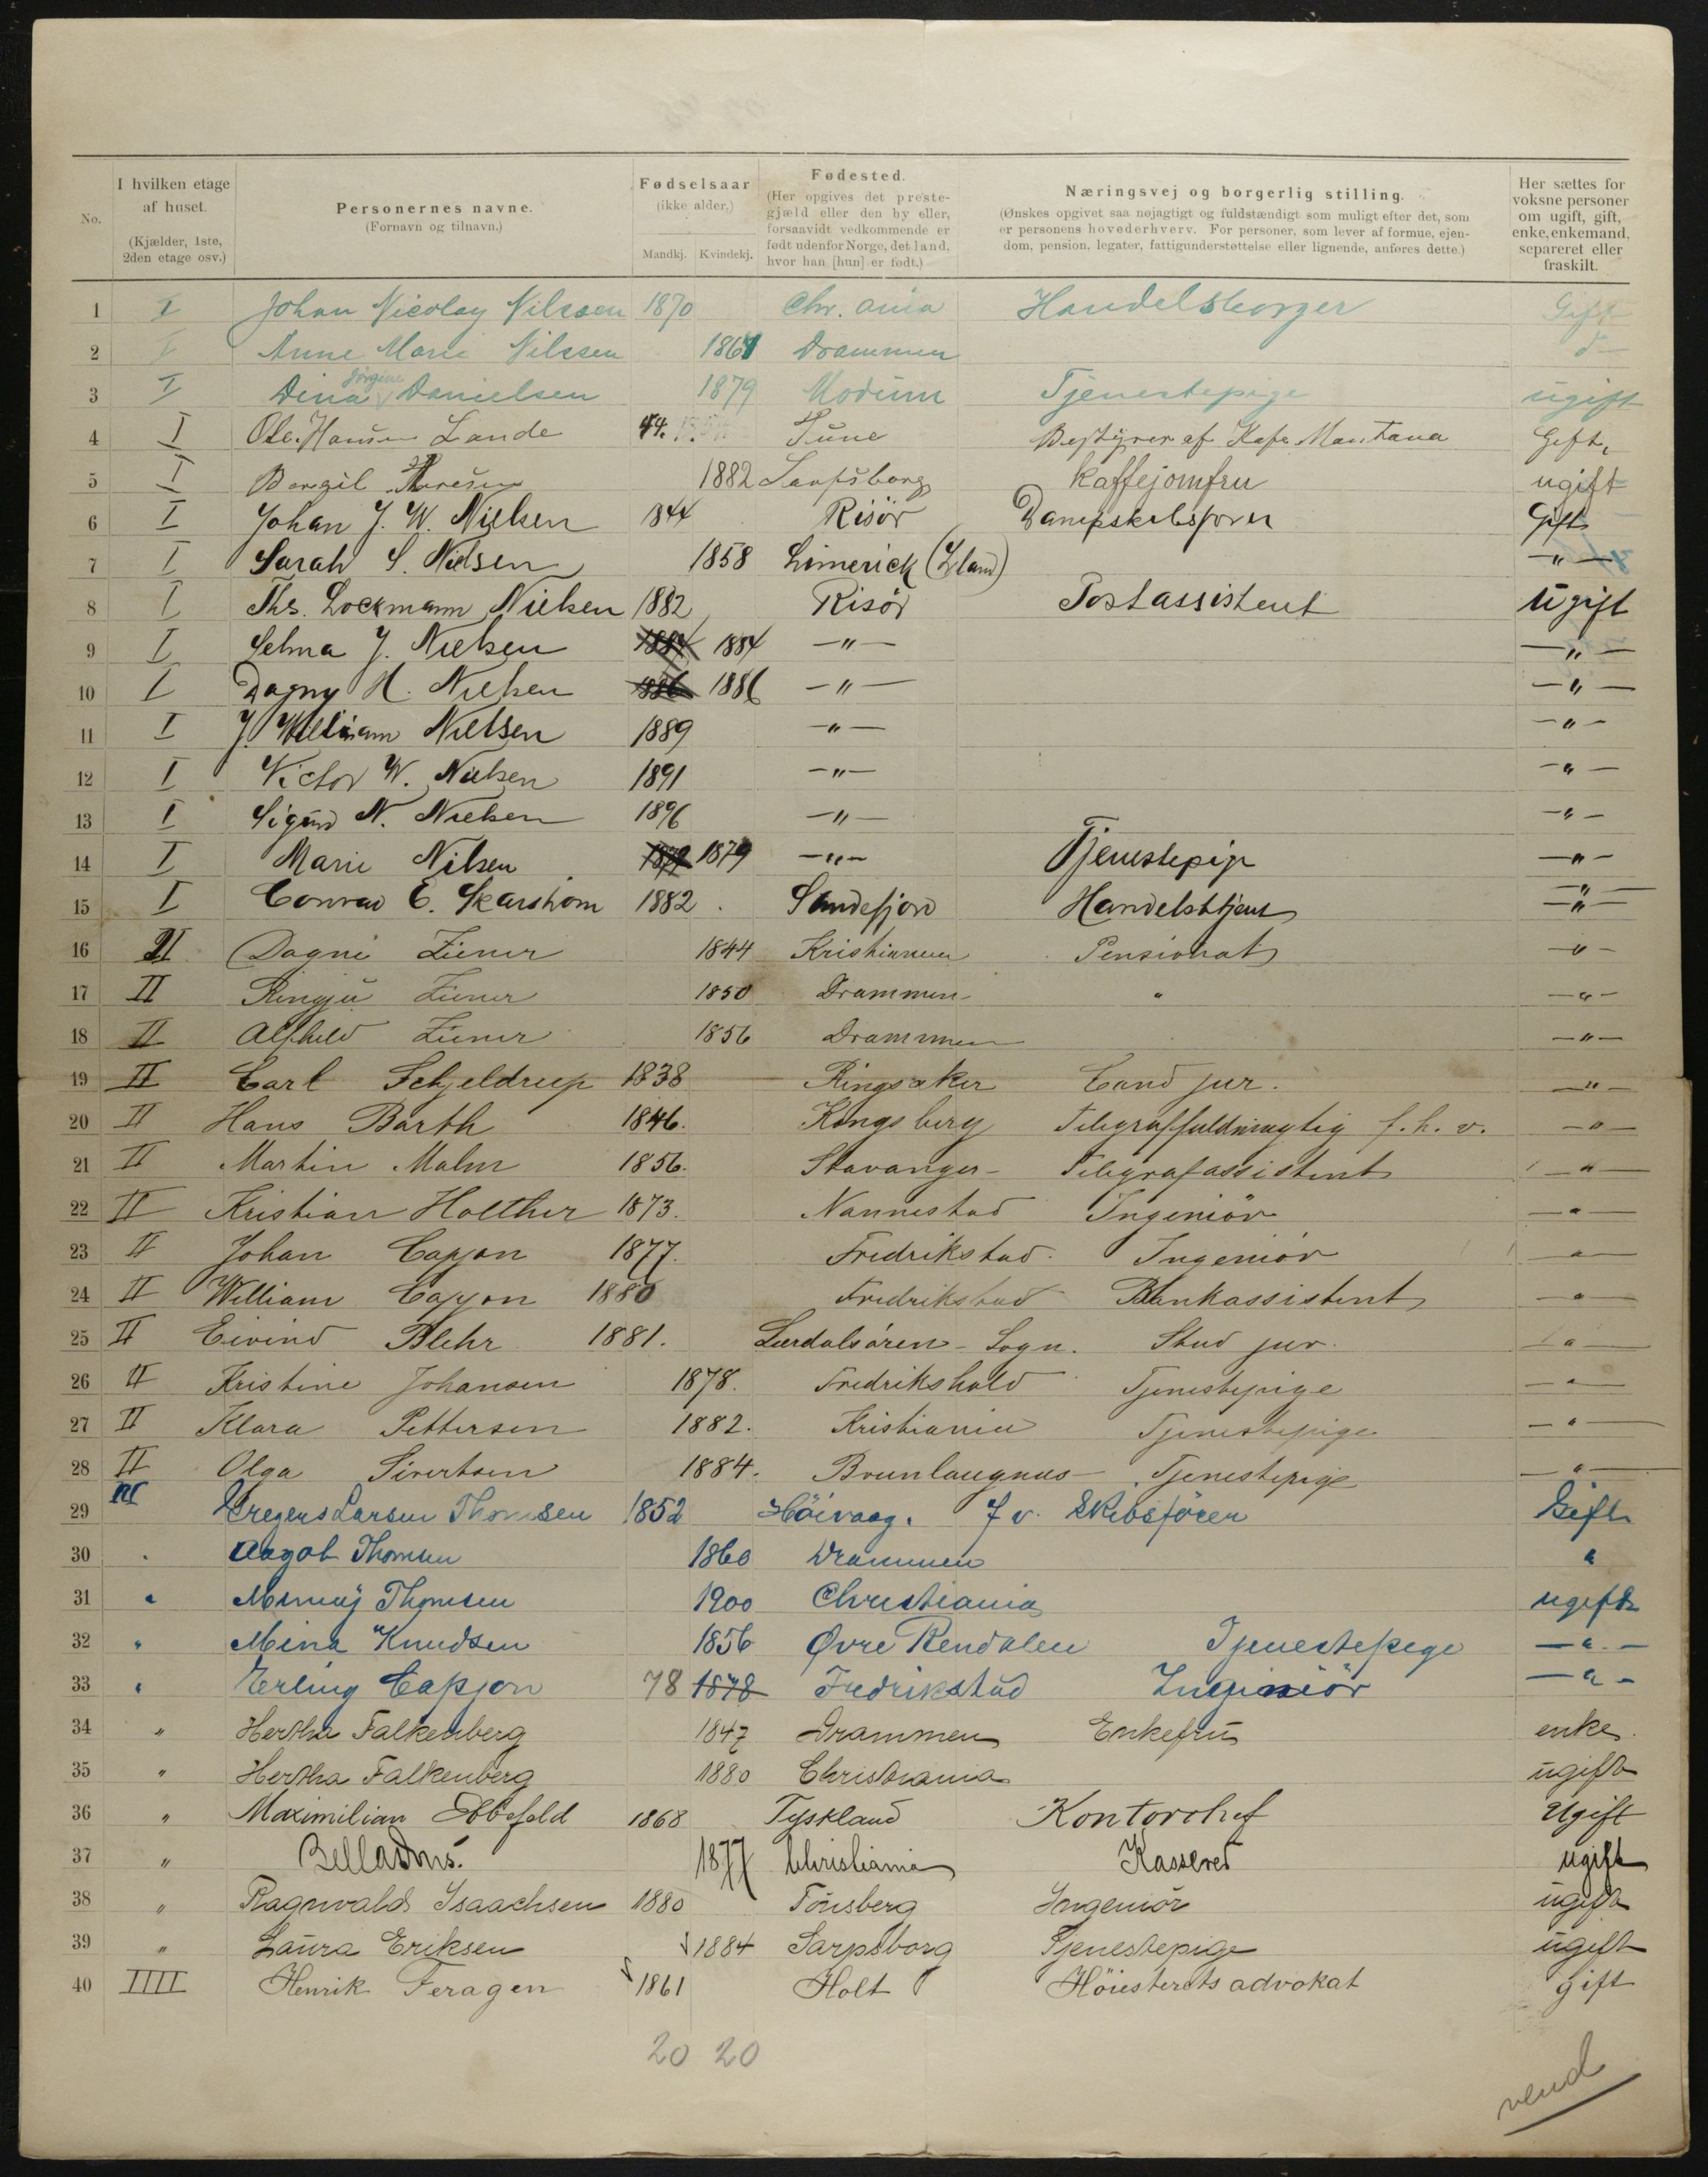 No.
I hvilken etage af huset. (Kjælder, 1ste, 2den etage osv.)
Personernes navne. (Fornavn og tilnavn.)
Fødselsaar (ikke alder.) Mandkj. Kvindekj.
Fødested. (Her opgives det prestegjæld eller den by eller, forsaavidt vedkommende er født udenfor Norge, det land, hvor han [hun] er født.)
Næringsvej og borgerlig stilling. (Ønskes opgivet saa nøjagtigt og fuldstændigt som muligt efter det, som er personens hovederhverv. For personer, som lever af formue, ejendom, pension, legater, fattigunderstøttelse eller lignende, anføres dette.)
Her sættes for voksne personer om ugift, gift, enke, enkemand, separeret eller fraskilt.
1 I Johan Nicolay Nilssen 1870 Chr. ania Handelsborger Gift
2 I Anne Marie Nilssen 1861 Drammen d—
3 I Dina Jörgine Danielsen 1879 Modum Tjenestepige ugift
4 I Ole Hansen Lande 44. Tune Bestyrer af Kafe Mantana Gift,
5 I Borgil 1882 Sarpsborg Kaffejomfru ugift
6 I Johan J. W. Nielsen 1844 Risör Dampskibsförer Gift
7 I Sarah S. Nielsen 1858 Limerick (Irland) —"—
8 I Ths. Lockmann Nielsen 1882 Risör Postassistent Ugift
9 I Selma J. Nielsen 1884 1884 —"— —"—
10 I Dagny H. Nielsen 1886 1886 —"— —"—
11 I J. William Nielsen 1889 —"— —"—
12 I Victor W. Nielsen 1891 —"— —"—
13 I Sigurd N. Nielsen 1896 —"— —"—
14 I Marie Nilsen 1879 1879 —"— Tjenestepige —"—
15 I Conrad E. Skarshom 1882 Sandefjord Handelsbtjent —"—
16 II Dagni Ziener 1844 Kristiania Pensionat —"—
17 II Ziener 1850 Drammen " —"—
18 II Alfhild Ziener 1856 Drammen —"—
19 II Carl Schjeldrup 1838 Ringsaker Cand jur. —"—
20 II Hans Barth 1846. Kongsberg Telegraffuldmægtig f. h. v. —"—
21 II Martin Malm 1856. Stavanger Telegrafassistent —"—
22 II Kristian Holther 1873. Nannestad Ingeniör —"—
23 II Johan Capjon 1877. Fredrikstad. Ingeniör —"—
24 II William Capjon 1880 Fredrikstad Bankassistent —"—
25 II Eivind Blehr 1881. Lærdalsören - Sogn. Stud jur. —"—
26 II Kristine Johansen 1878. Fredrikshald Tjenestepige —"—
27 II Klara Pettersen 1882. Kristiania Tjenestepige —"—
28 II Olga Sivertsen 1884. Brunlaugnæs Tjenestepige —"—
29 III Gregers Larsen Thomsen 1852 Höivaag. f v. Skibsförer Gift
30 " Aagot Thomsen 1860 Drammen "
31 " Thomsen 1900 Christiania ugift
32 " Mina Knudsen 1856 Øvre Rendalen Tjenestepige —"—
33 " Erling Capjon 78 1878 Fredrikstad Ingeniör —"—
34 " Hertha Falkenberg 1847 Drammen Enkefru enke.
35 " Hertha Falkenberg 1880 Christiania ugift
36 " Maximilian Ebbefeld 1868 Tyskland Kontorchef Ugift
37 " 1877 Christiania Kasserer ugift
38 " Ragnvald Isaachsen 1880 Tönsberg Ingeniör ugift
39 " Laura Eriksen 1884 Sarpsborg Tjenestepige ugift
40 IIII Henrik Feragen 1861 Holt Höiesteretsadvokat gift
20 20
vend